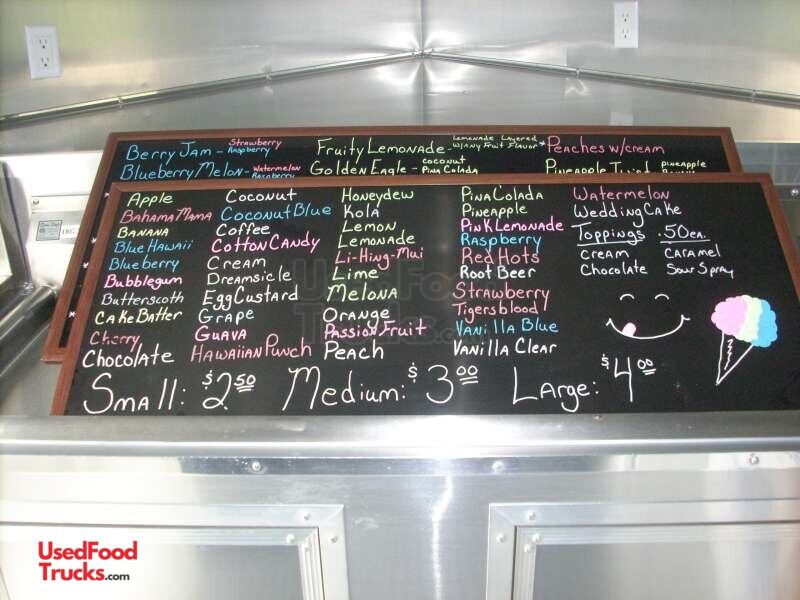 Berry Jam - Strawberry Raspberry
Blueberry Melon - Watermelon Raspberry
Fruity Lemonade - Lemonade Layered w/Any Fruit Flavor
Golden Eagle - Coconut Pina Colada
Peaches w/cream
Pineapple Twist pineapple
Apple
Bahama Mama
Banana
Blue Hawaii
Blueberry
Bubblegum
Butterscoth
Cake Batter
Cherry
Chocolate
Coconut
Coconut Blue
Coffee
Cotton Candy
Cream
Dreamsicle
Egg Custard
Grape
Guava
Hawaiian Punch
Honeydew
Kola
Lemon
Lemonade
Li-Hing-Mui
Lime
Melona
Orange
Passion Fruit
Peach
Pina Colada
Pineapple
Pink Lemonade
Raspberry
Red Hots
Root Beer
Strawberry
Tigersblood
Vanilla Blue
Vanilla Clear
Watermelon
Wedding Cake
Toppings .50 ea.
Cream Caramel
Chocolate Sour Spray
Small: $2.50 Medium: $3.00 Large: $4.00
Used Food
Trucks.com
UsedFood
Trucks.com